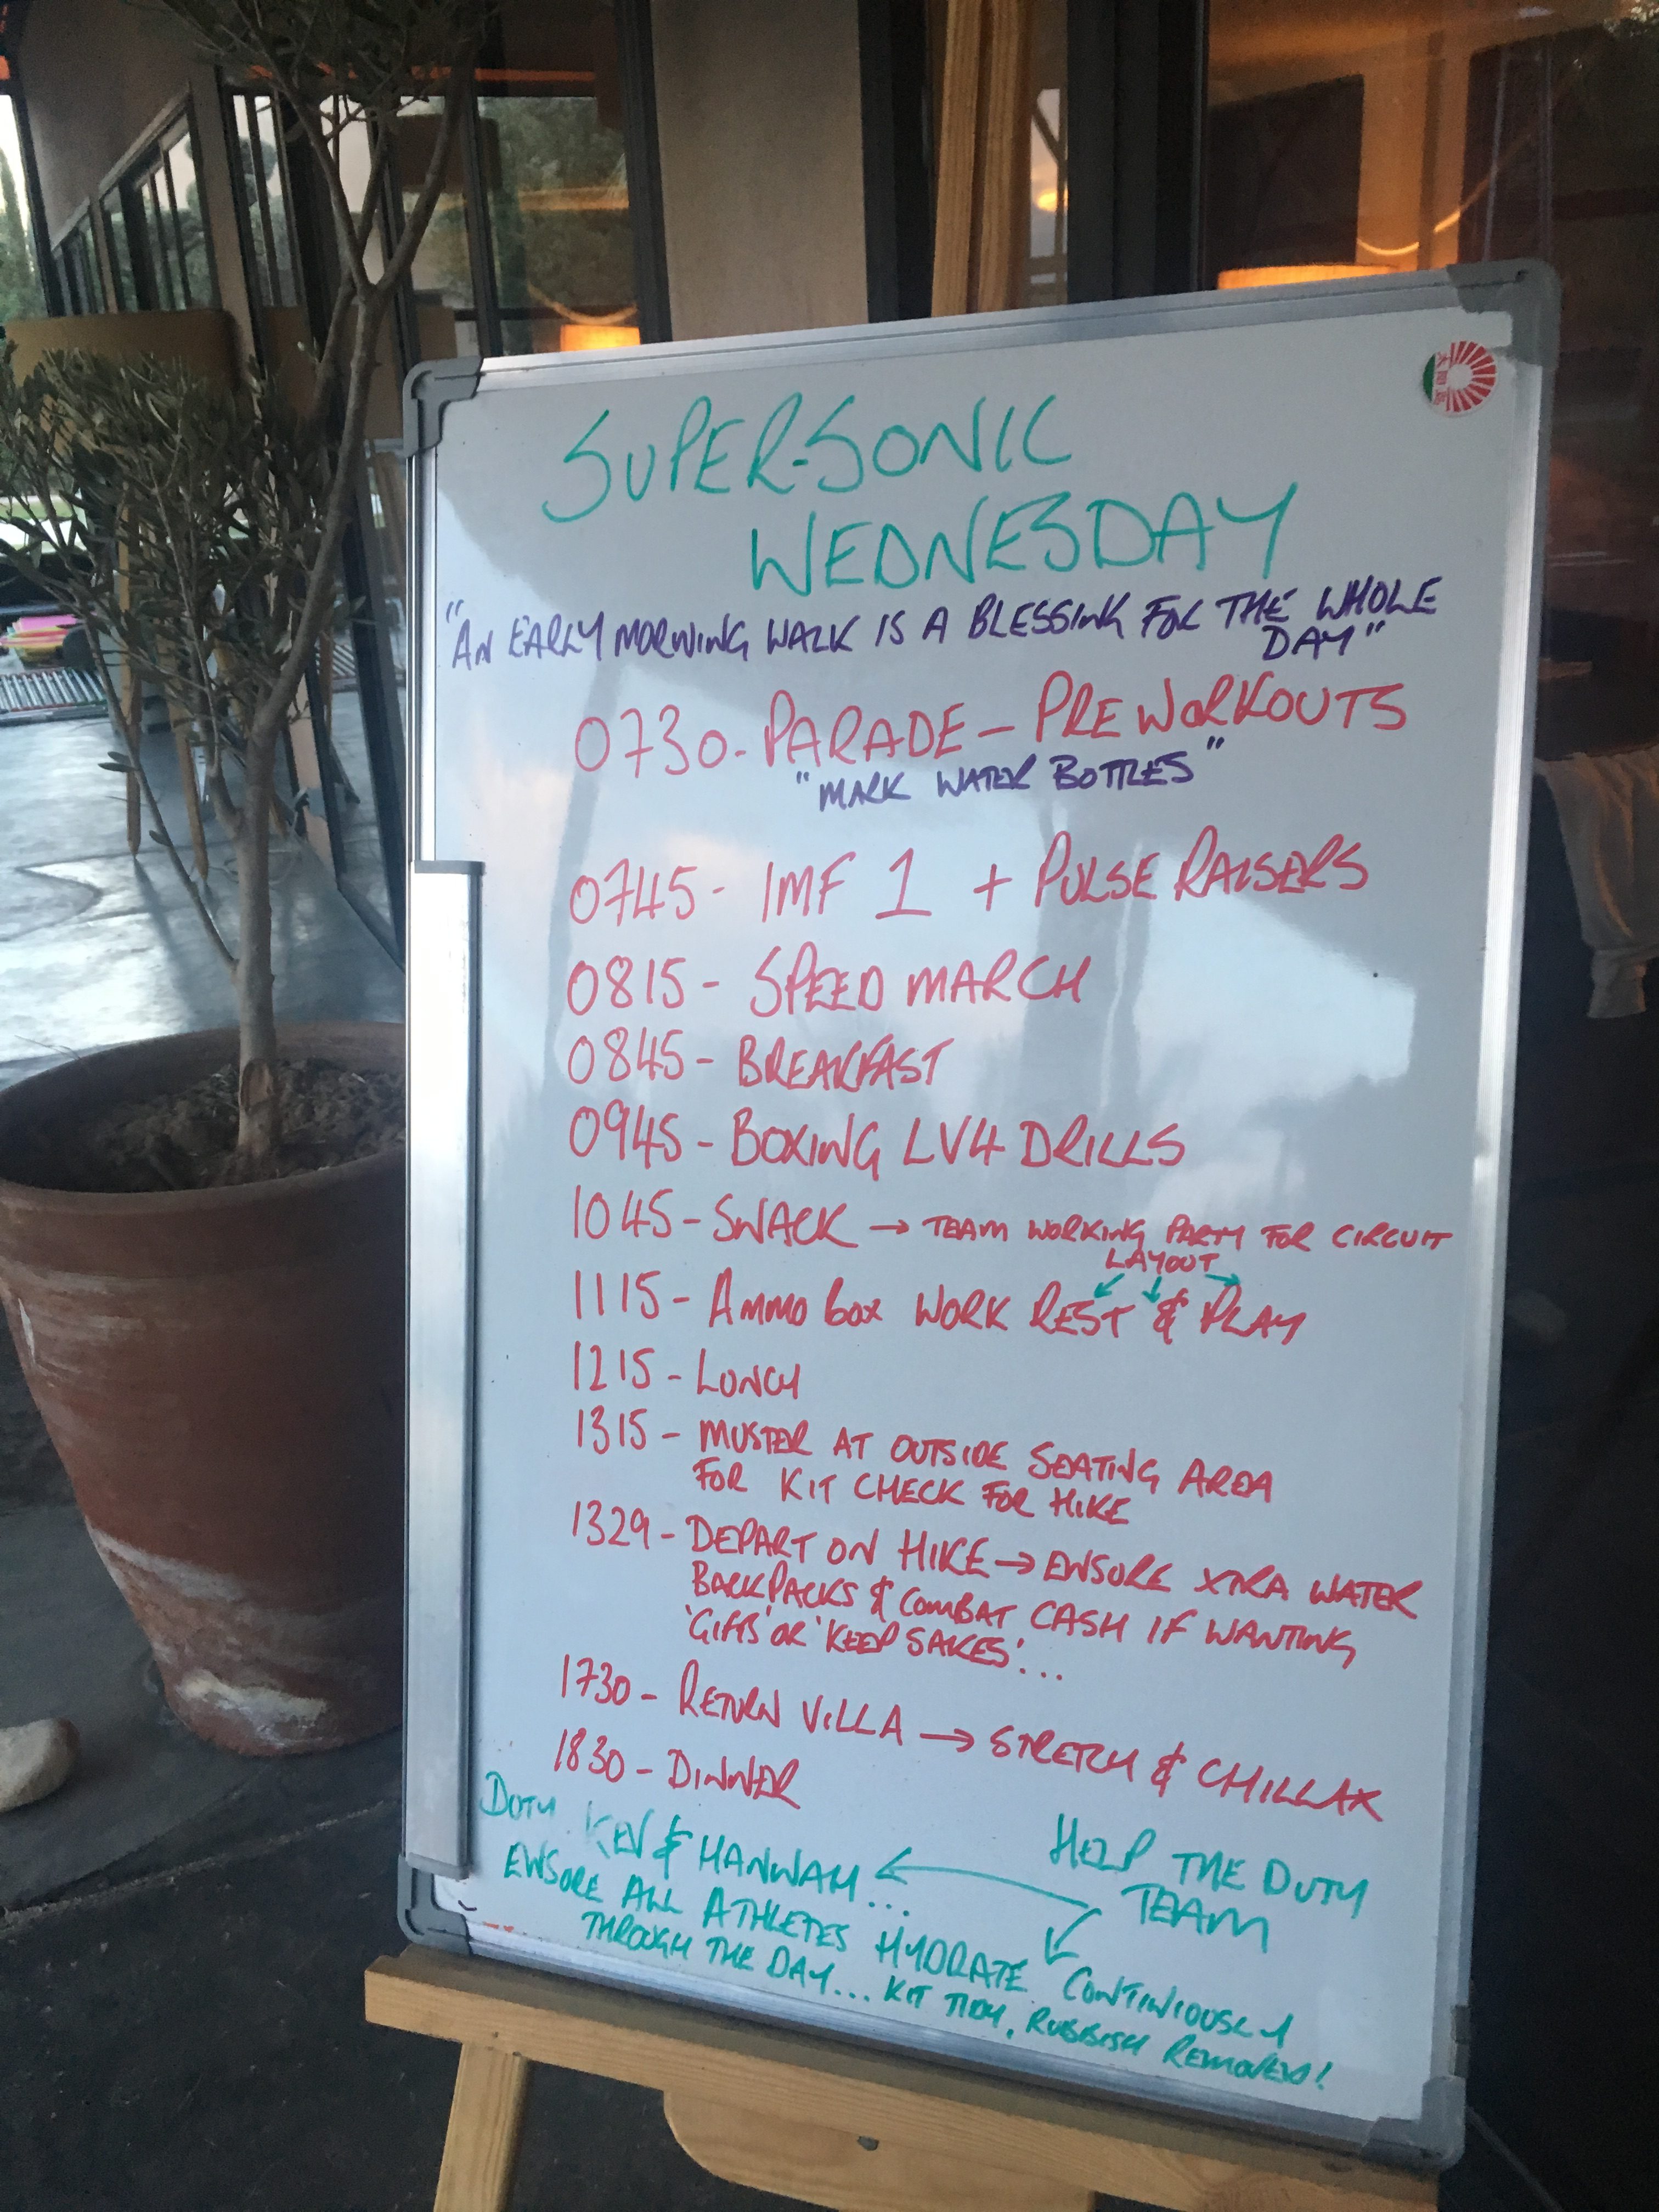 SUPER-SONIC
WEDNESDAY
"AN EARLY MORNING WALK IS A BLESSINK FOR THE WHOLE
DAY"
0730-PARADE-PRE WORKOUTS
"MARK WATER BOTTLES"
0745- IMF 1 + PULSE RAISERS
0815- SPEED MARCH
0845- BREAKFAST
0945- BOXING LV4 DRILLS
1045- SNACK → TEAM WORKING PARTY FOR CIRCUIT
LAYOUT
1115- Ammo box WORK REST & PLAY
1215- LUNCH
1315- MUSTER AT OUTSIDE SEATING AREA
FOR KIT CHECK FOR HIKE
1329- DEPART ON HIKE → ENSURE XTRA WATER
BACKPACKS & COMBAT CASH IF WANTING
'GIFTS' OR 'KEEP SAKES'...
1730- RETURN VILLA → STRETCH & CHILLAX
1830- DINNER
DUTY KEV & HANNAH... ← HELP THE DUTY
TEAM
ENSURE ALL ATHLETES HYDRATE CONTINIOUSLY
THROUGH THE DAY... KIT TIDY, RUBBISH REMOVED!